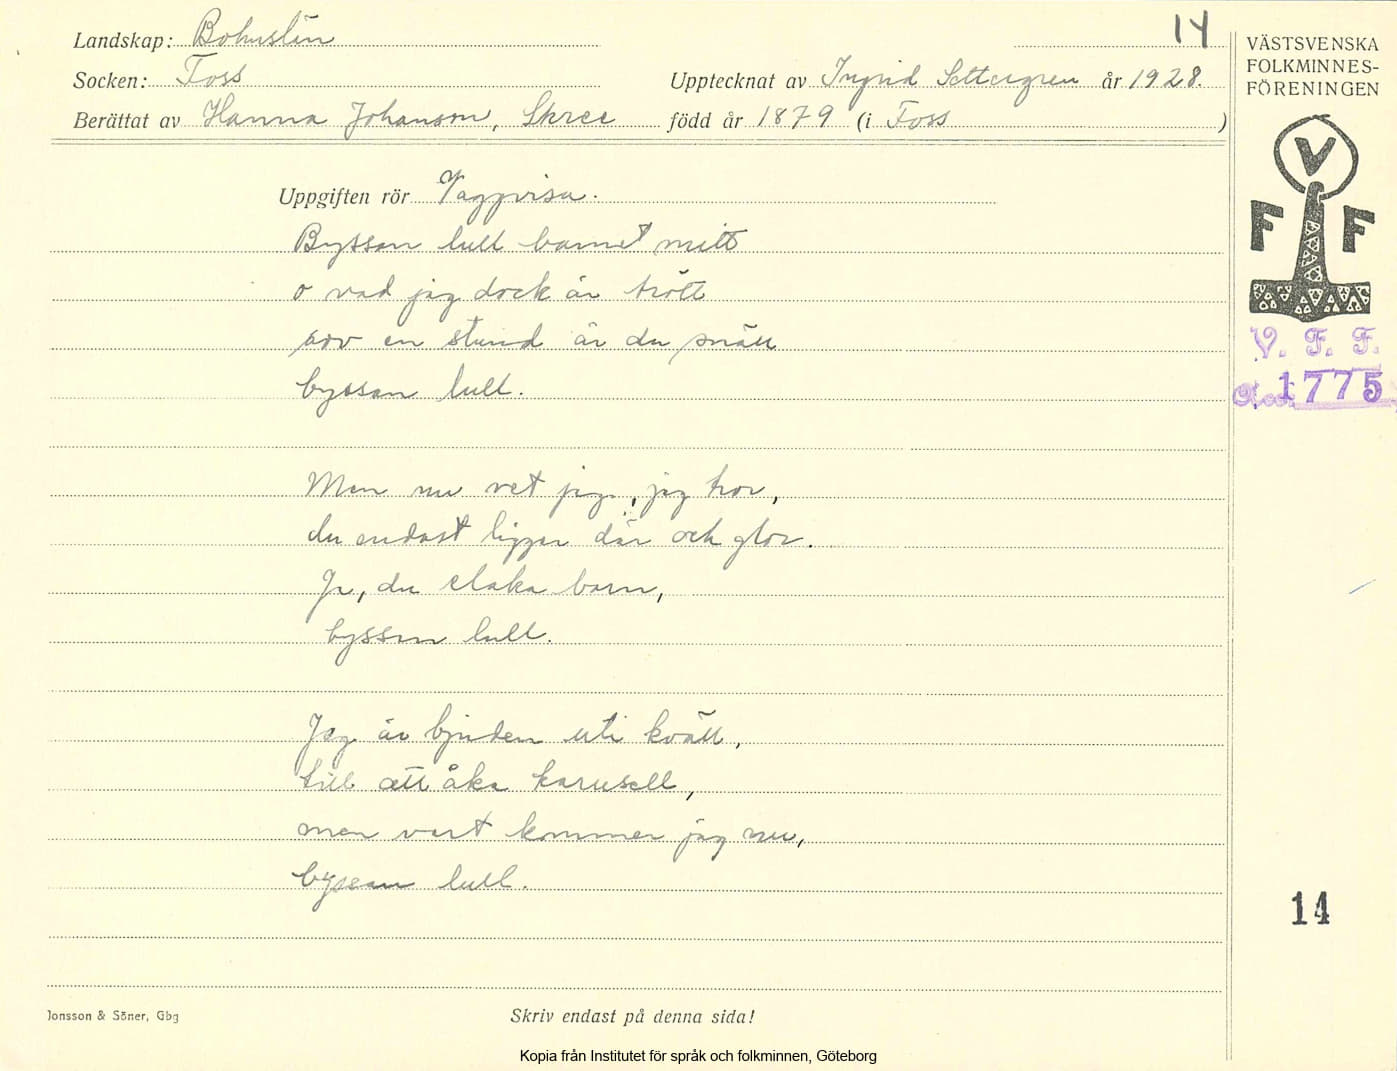 14
Landskap: Bohuslän
Socken: Foss
Upptecknat av Ingrid Settergren år 1928.
Berättat av Hanna Johanson, Skree född år 1879 (i Foss)
Uppgiften rör Vaggvisa.
Byssan lull barnet mitt
o vad jag dock är trött
sov en stund är du snäll
byssan lull.
Men nu vet jag, jag tror,
du endast ligger där och glor.
Ja, du elaka barn,
byssan lull.
Jag är bjuden uti kväll,
till att åka karusell,
men vart kommer jag nu,
byssan lull.
Jonsson & Söner, Gbg
Skriv endast på denna sida!
Kopia från Institutet för språk och folkminnen, Göteborg
VÄSTSVENSKA
FOLKMINNES-
FÖRENINGEN
V
F F
V. F. F.
1775
14